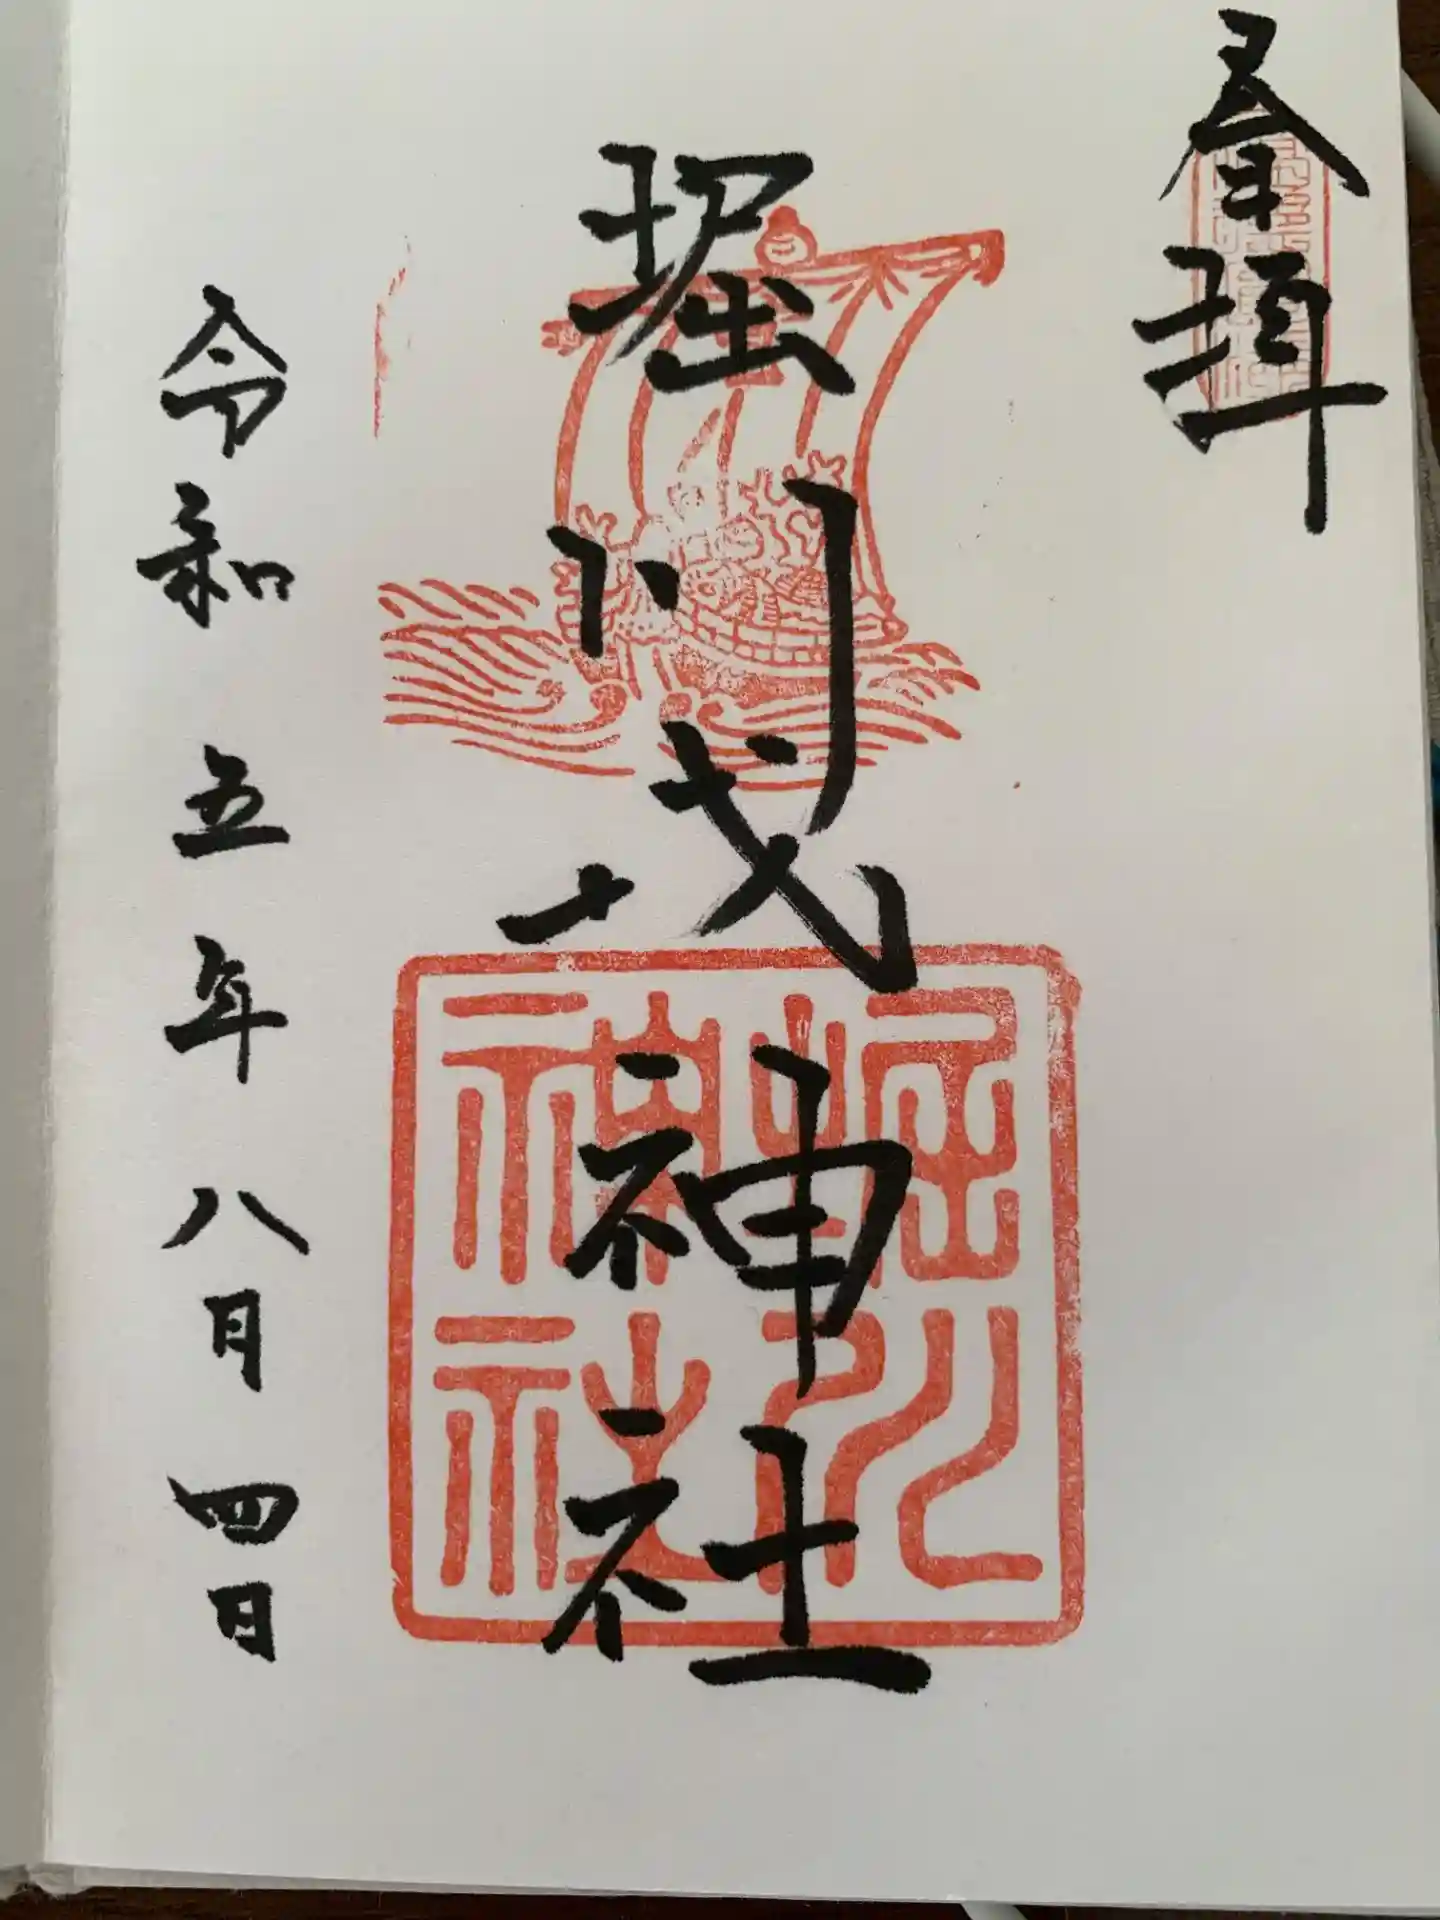 奉拝
堀川戎神社
堀川
神社
令和五年八月四日